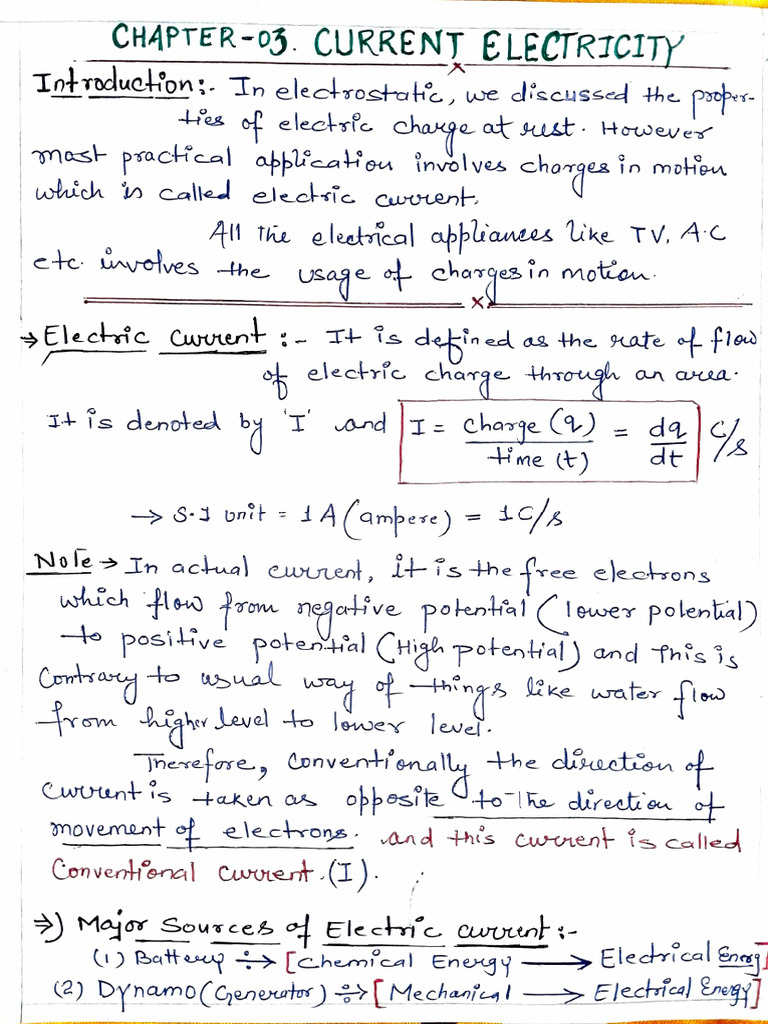 CHAPTER-03. CURRENT ELECTRICITY
Introduction:- In electrostatic, we discussed the proper-
ties of electric charge at rest. However
most practical application involves charges in motion
which is called electric current.
All the electrical appliances like TV, A.C
etc. involves the usage of charges in motion.
→ Electric Current :- It is defined as the rate of flow
of electric charge through an area.
It is denoted by 'I' and I = charge (q)/time (t) = dq/dt C/s
→ S.I unit = 1 A (ampere) = 1 C/s
Note → In actual current, it is the free electrons
which flow from negative potential (lower potential)
to positive potential (High potential) and This is
Contrary to usual way of things like water flow
from higher level to lower level.
Therefore, conventionally the direction of
current is taken as opposite to The direction of
movement of electrons. and this current is called
Conventional current.(I).
⇒) Major Sources of Electric current:-
(1) Battery ÷→ [Chemical Energy → Electrical Energy]
(2) Dynamo (Generator) ÷→ [Mechanical → Electrical Energy]